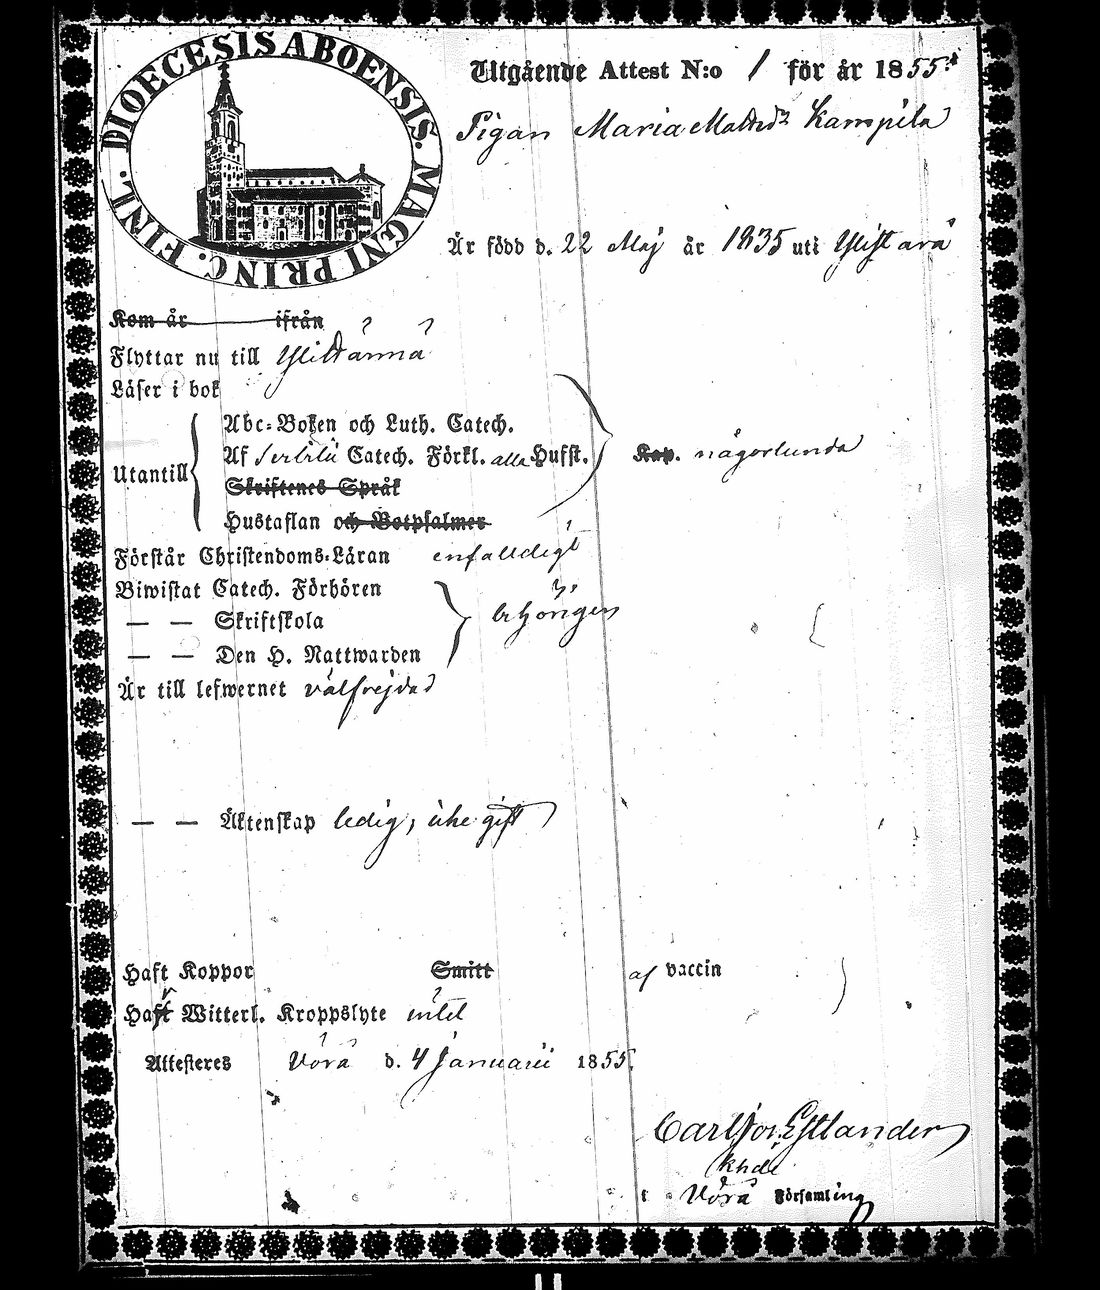 DIOECESIS ABOENSIS. MAGNI PRINC. FINL.
Utgående Attest N:o 1 för år 1855.
Pigan Maria Kampila
Är född d. 22 Maj år 1835 uti
Kom år ifrån
Flyttar nu till
Läser i bok
Utantill
Abc-Boken och Luth. Catech.
Af Catech. Förkl. alla Hufst.
Kap. någorlunda
Skriftenes Språk
Hustaflan och Botpsalmer
Förstår Christendoms-Läran enfaldigt
Biwistat Catech. Förhören
— — Skriftskola
behörigen
— — Den H. Nattwarden
Är till lefwernet välfrejdad
— — Äktenskap ledig, icke gift
Haft Koppor Smitt af vaccin
Haft Witterl. Kroppslyte intet
Attesteres Vörå d. 4 Januarii 1855.
Carl Estlander
Khde
i Vörå Församling